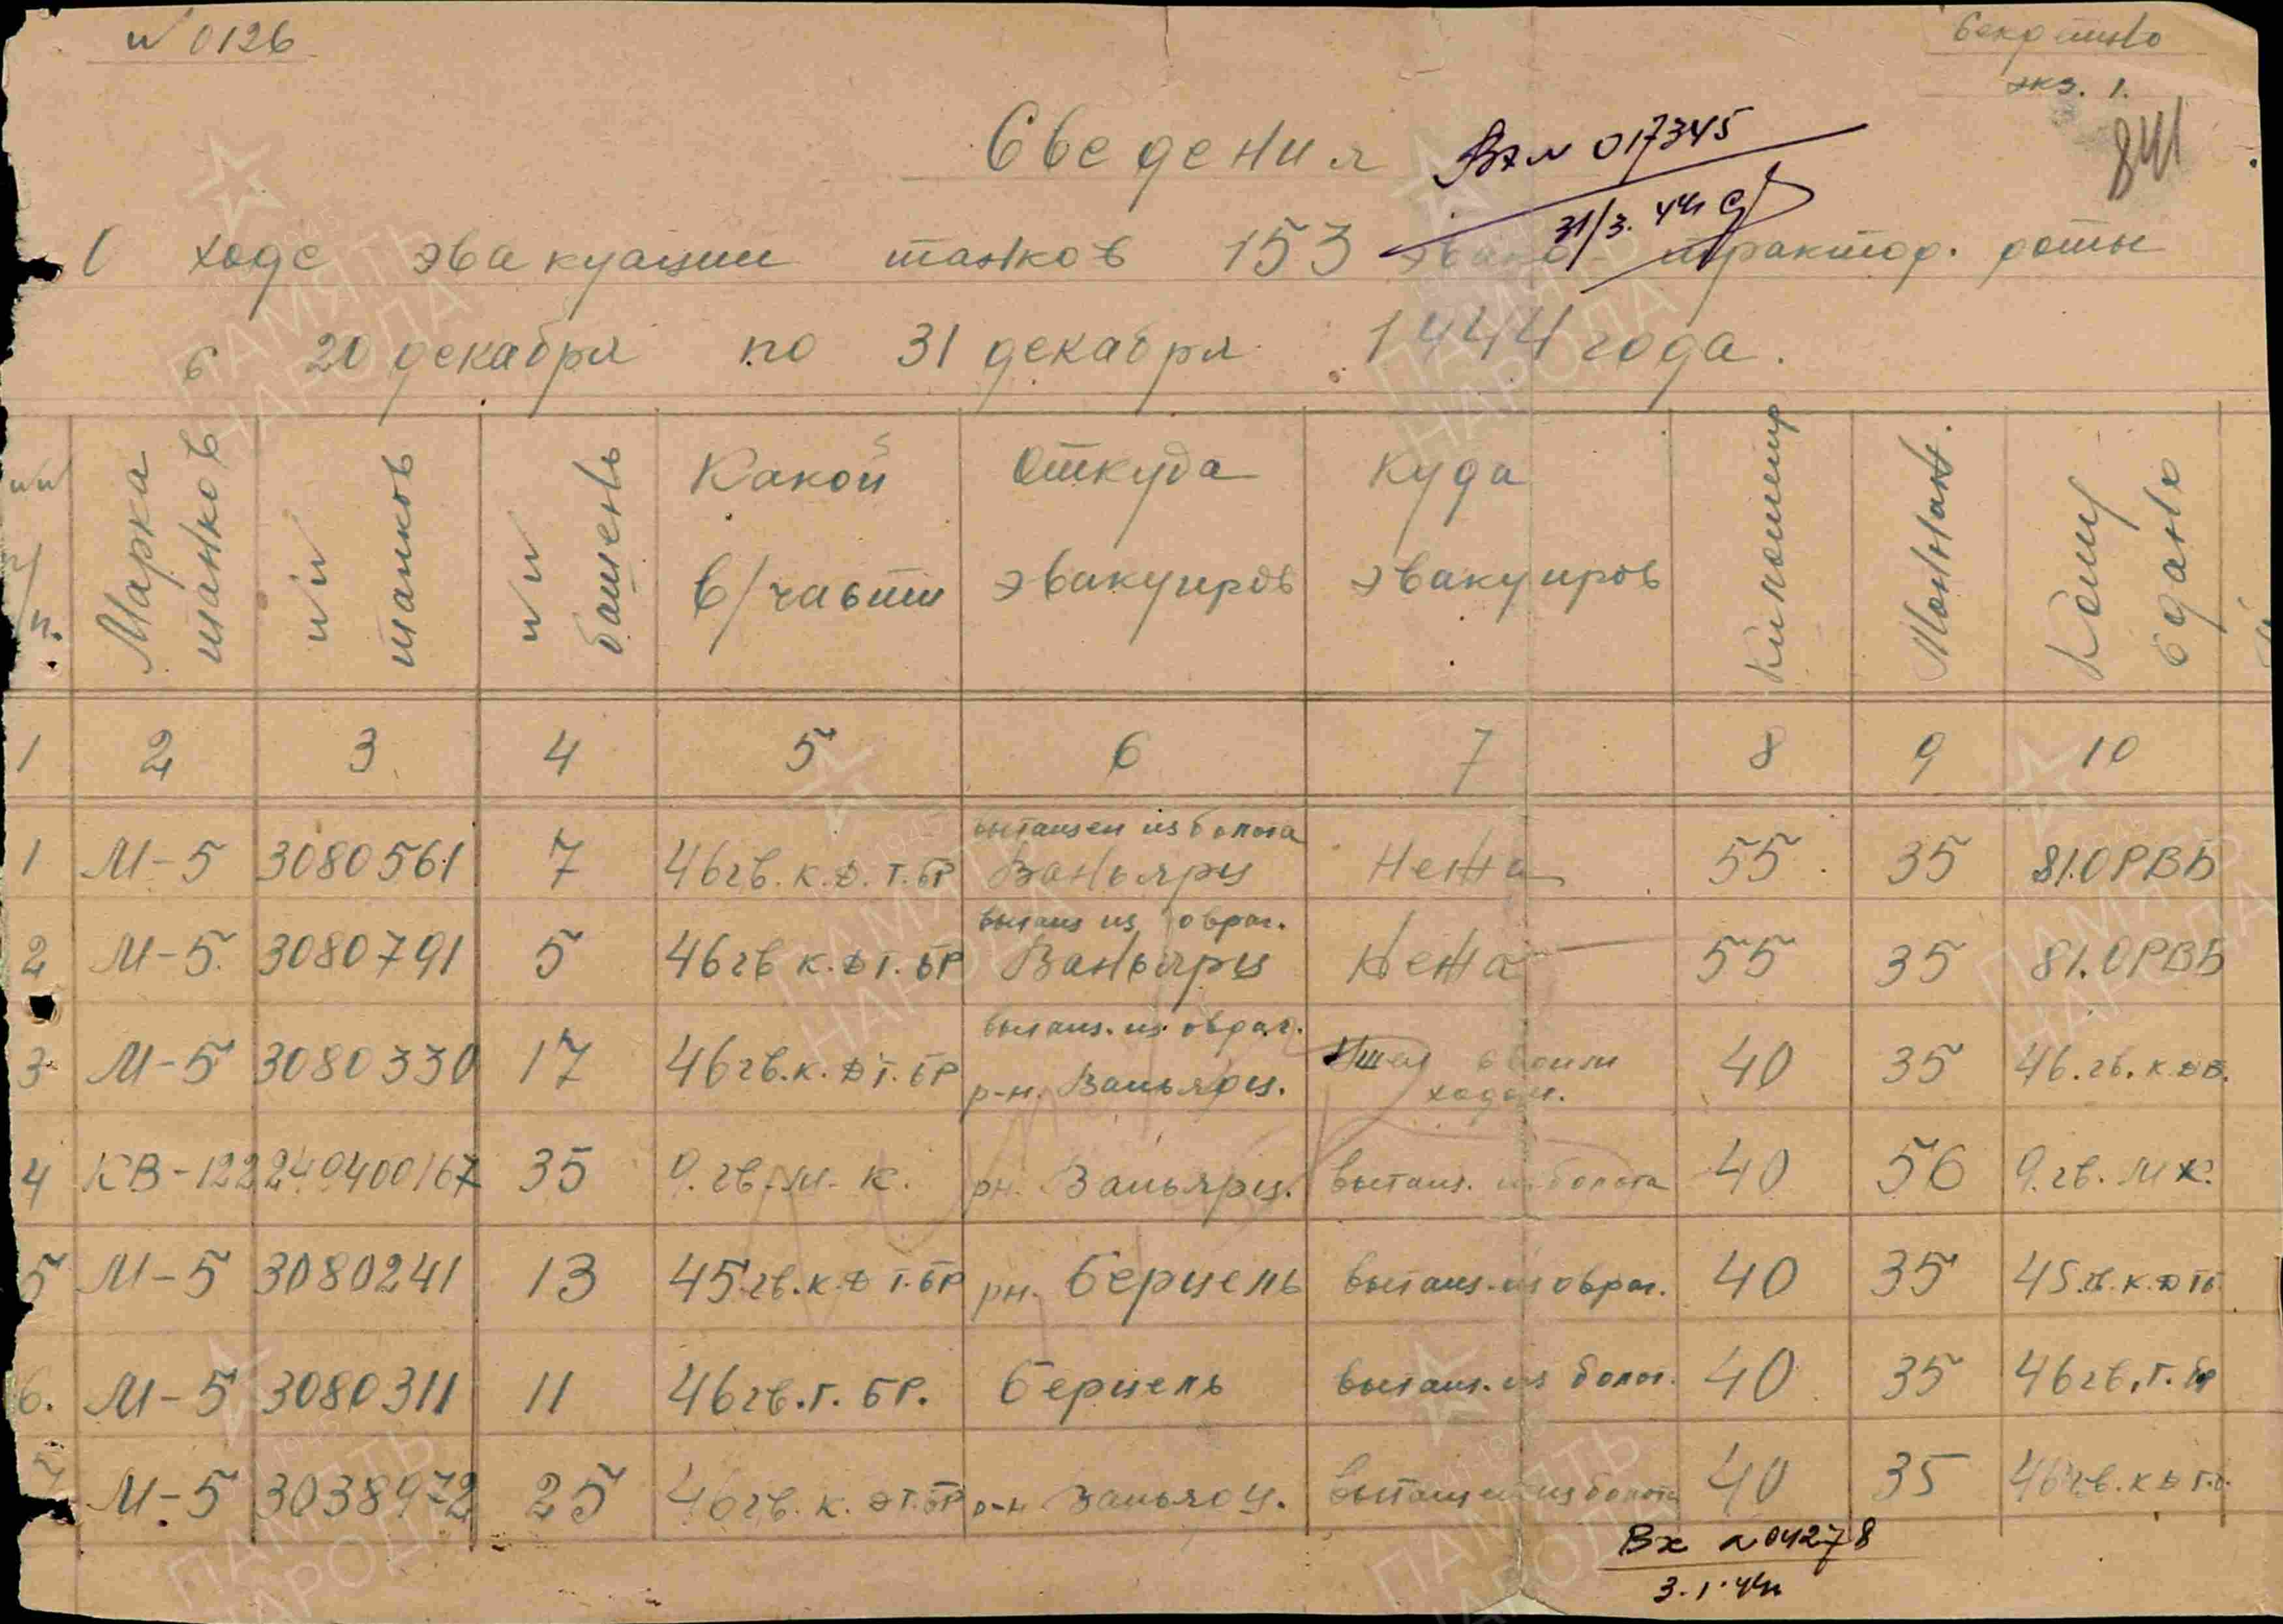 № 0126
Секретно
экз. 1.
841
Сведения
Вх № 017345
31/3. 44
О ходе эвакуации танков 153 эвако- трактор. роты
с 20 декабря по 31 декабря 1944 года.
№№ п/п.
Марка танков
№№ танков
№№ башень
Какой в/части
Откуда эвакуиров
Куда эвакуиров
Километр
Монтаж.
Кому сдано
1 2 3 4 5 6 7 8 9 10
вытащен из болота
1 М-5 3080561 7 46 гв. к. Д. Т. БР Ваньярц Нежа 55 35 81. ОРВБ
вытащ из овраг.
2 М-5. 3080791 5 46 гв к. Д Т. БР Ваньярц Нежа 55 35 81. ОРВБ
вытащ. из овраг.
3 М-5 3080330 17 46 гв. к. Д Т. БР р-н. Ваньярц. Ушел своим ходом. 40 35 46. гв. к. ДВ.
4 КВ-122 240400167 35 9. гв. м. к. рн. Ваньярц. вытащ. из болота 40 56 9. гв. М К.
5 М-5 3080241 13 45 гв. к. Д Т. БР рн. Берцель вытащ. из овраг. 40 35 45. гв. к. Д ТБ.
6. М-5 3080311 11 46 гв. Т. БР. Берцель вытащ. из болот. 40 35 46 гв. Т. бр
7 М-5 3038972 25 46 гв. к. Д Т. БР р-н Ваньярц. вытащен из болота 40 35 46 гв. к Д
Вх № 04278
3. 1. 44